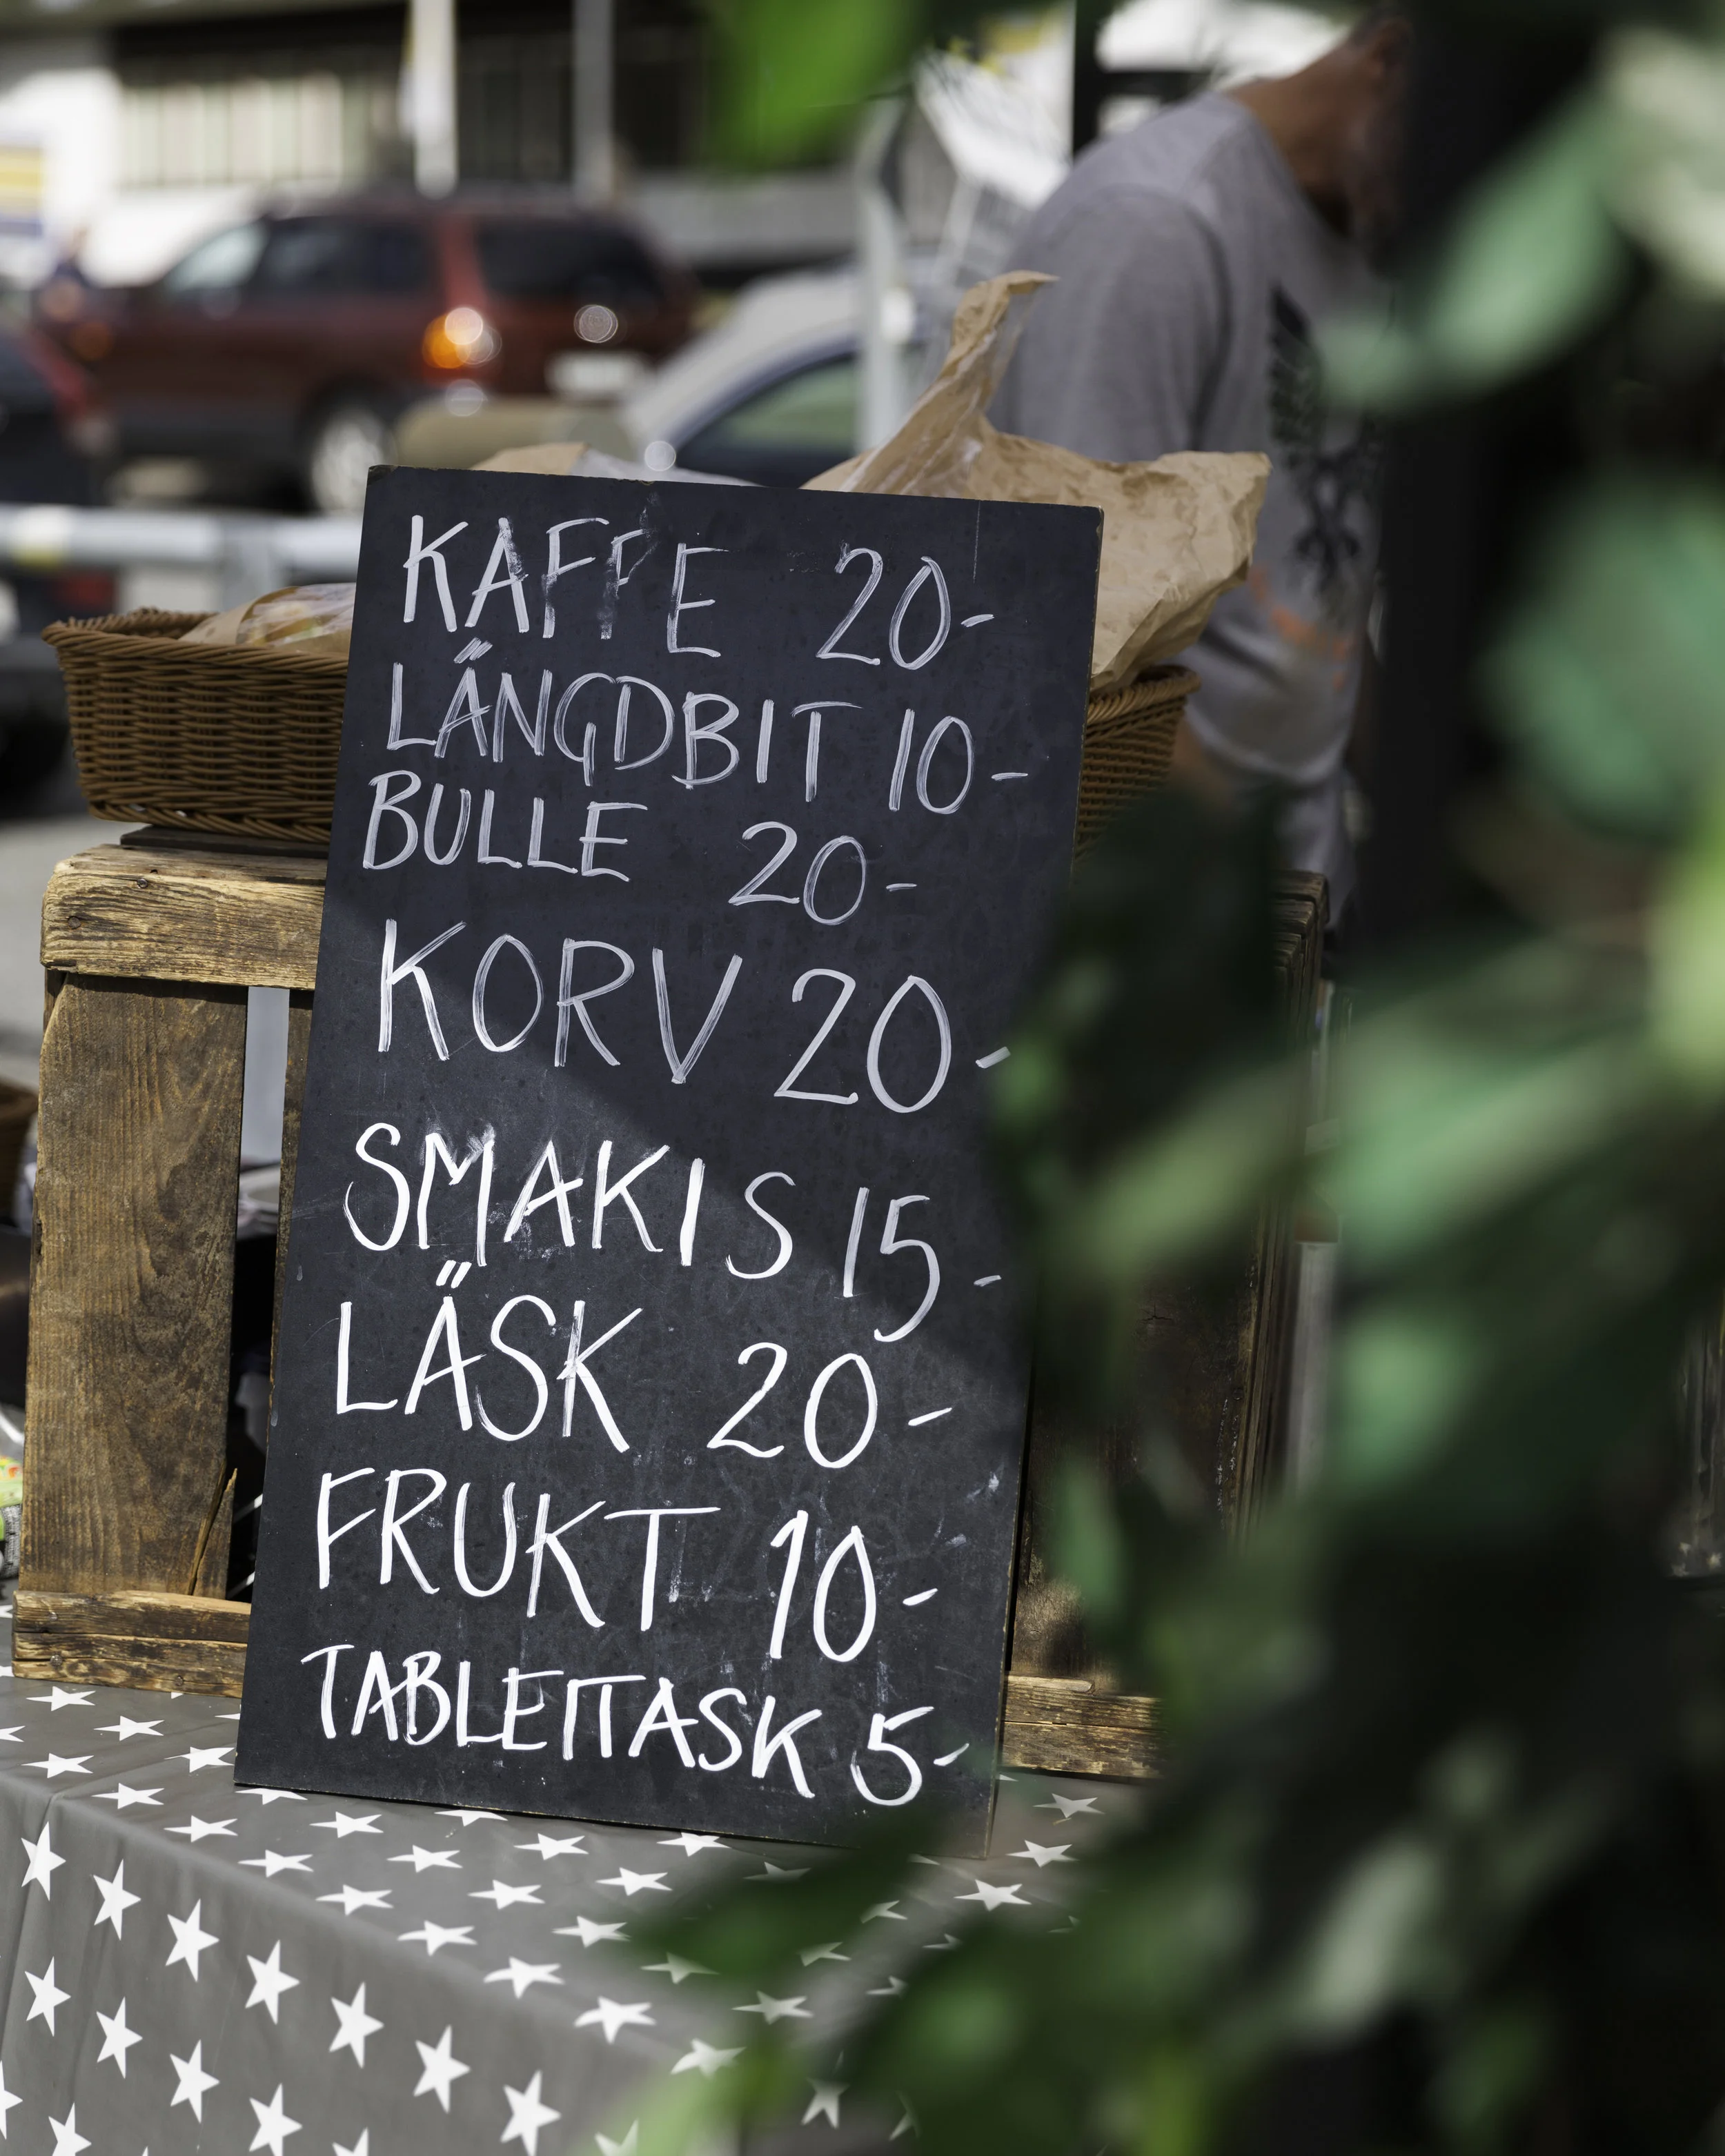 KAFFE 20-
LÄNGDBIT 10-
BULLE 20-
KORV 20-
SMAKIS 15-
LÄSK 20-
FRUKT 10-
TABLETTASK 5-